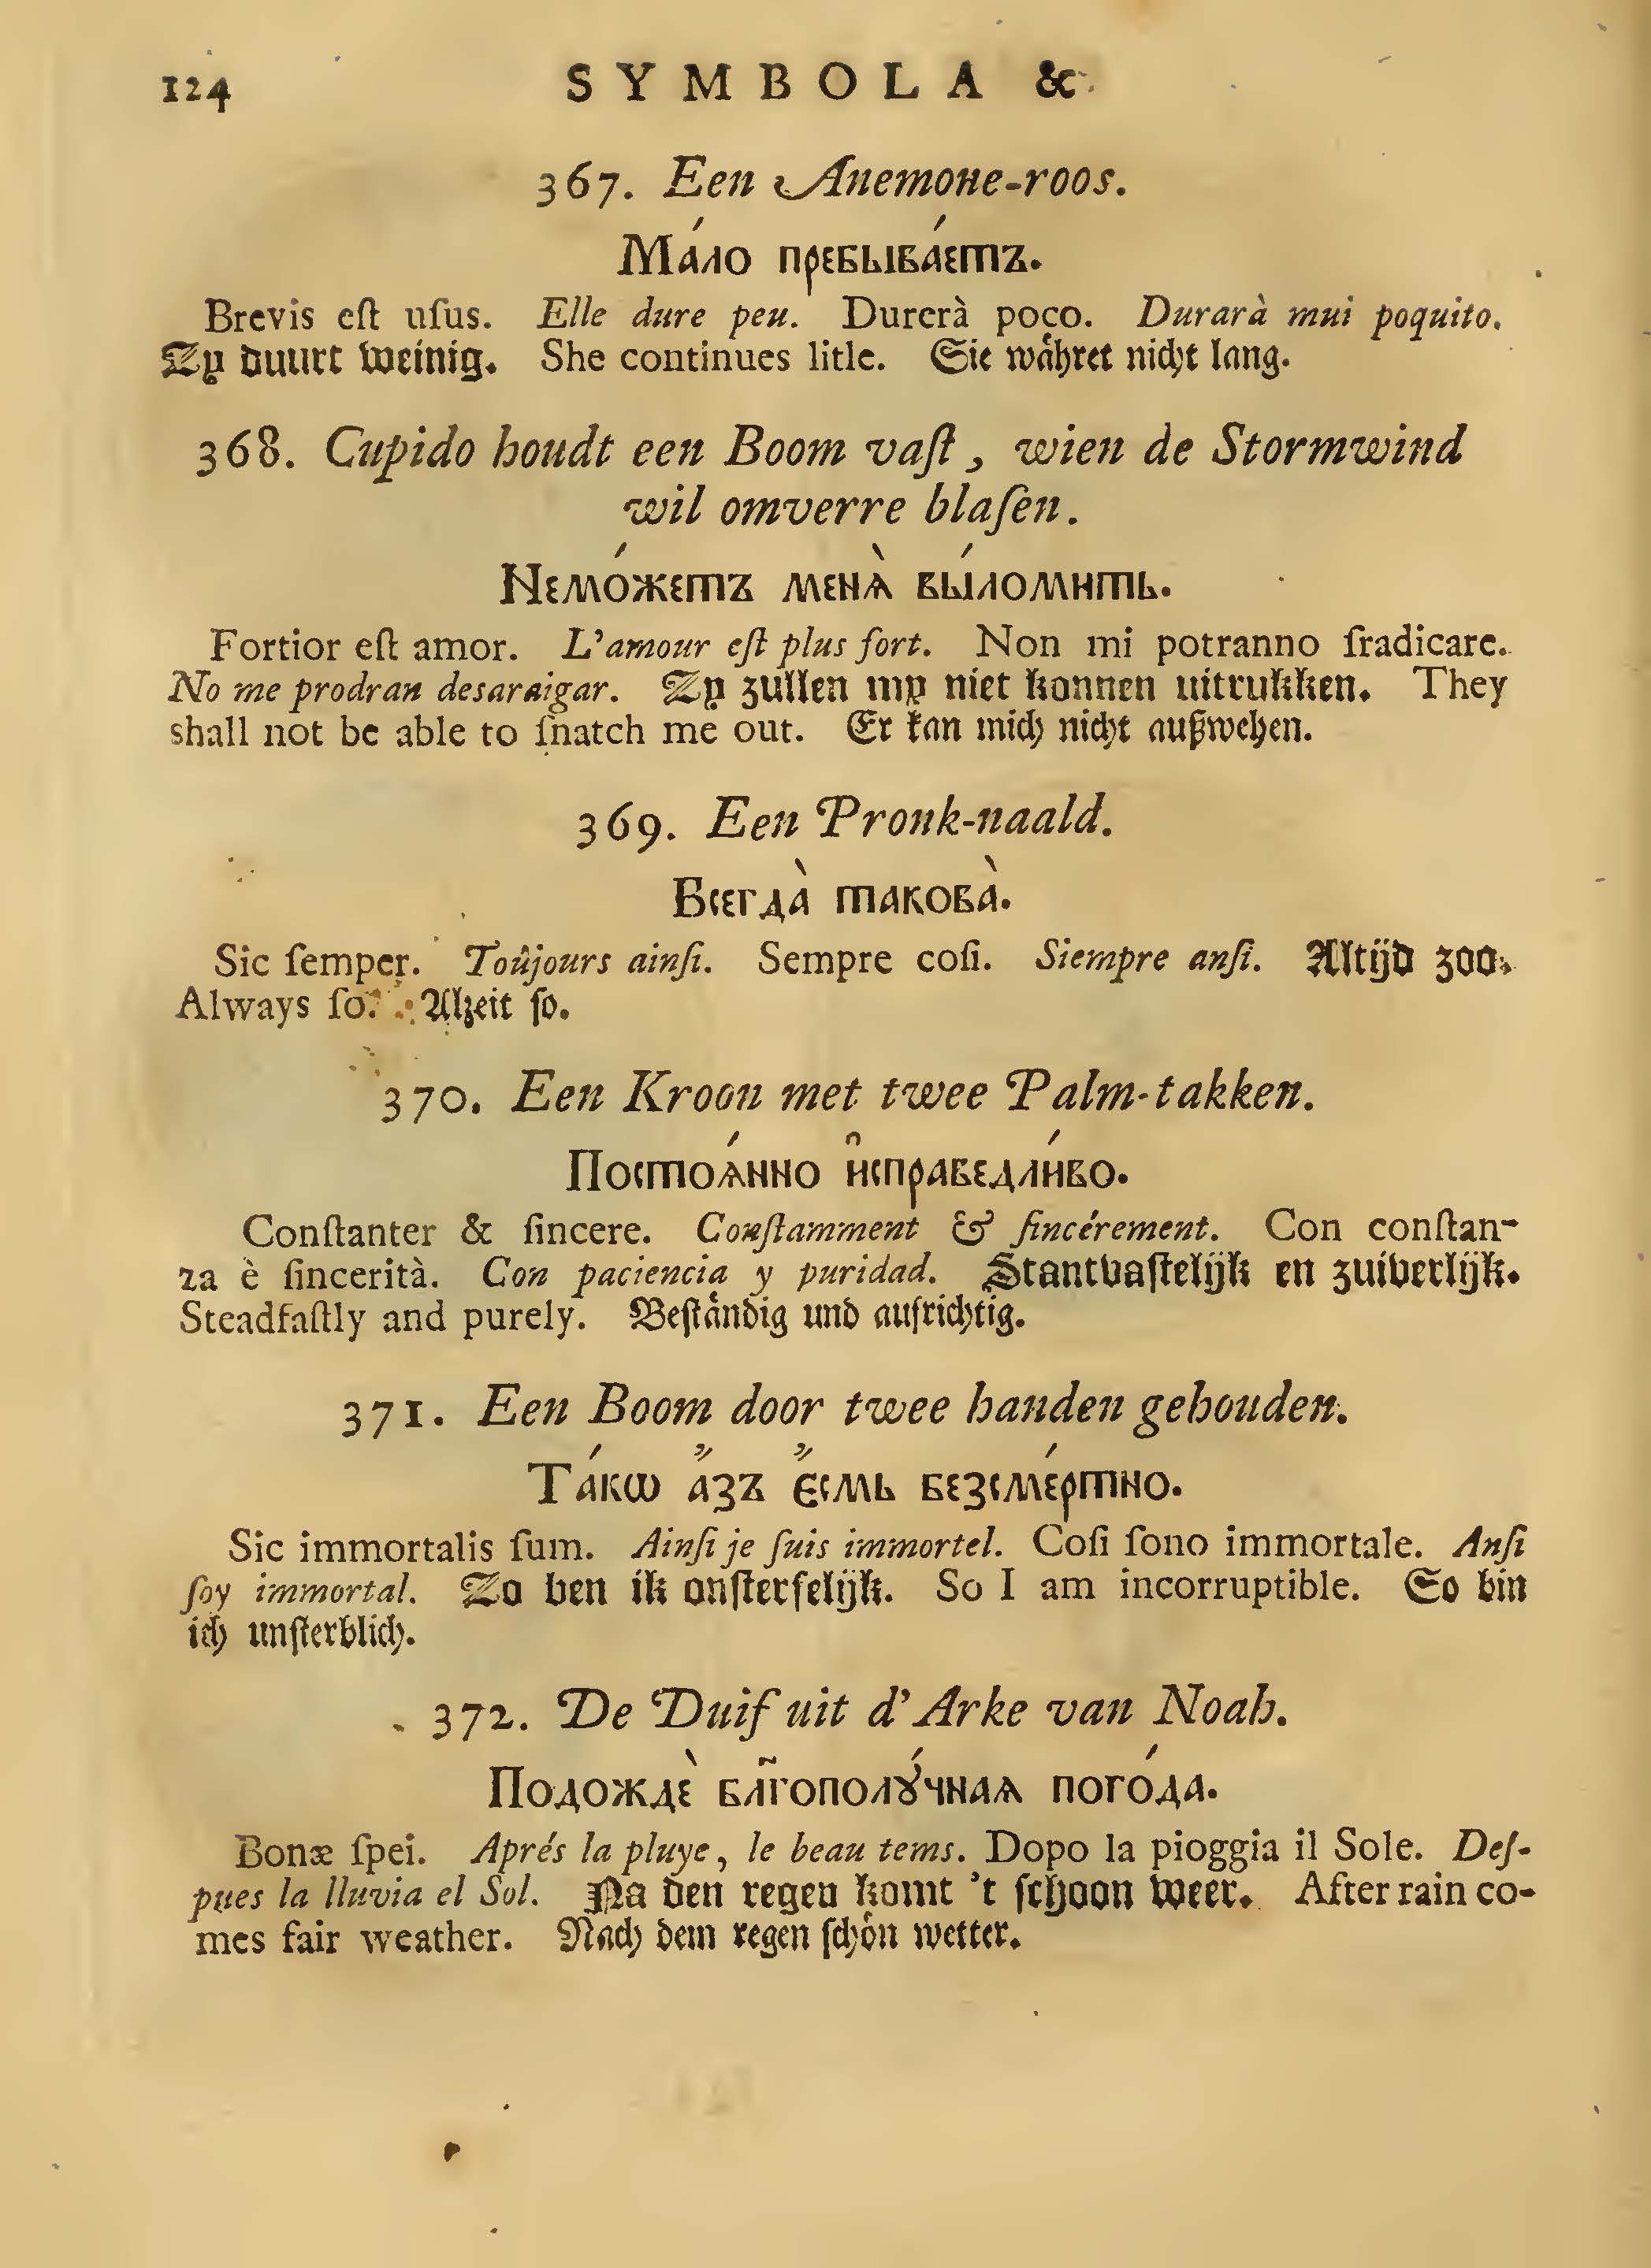 124 SYMBOLA &c.
367. Een Anemone-roos.
Ма́ло пребыва́етъ.
Brevis eſt uſus. Elle dure peu. Durerà poco. Durarà mui poquito.
Zy duurt weinig. She continues litle. Sie wåhret nicht lang.
368. Cupido houdt een Boom vaſt, wien de Stormwind
wil omverre blaſen.
Немо́жетъ менѧ̀ вы́ломить.
Fortior eſt amor. L'amour eſt plus fort. Non mi potranno ſradicare.
No me prodran desaraigar. Zy zullen my niet konnen uitrukken. They
shall not be able to ſnatch me out. Er kan mich nicht außwehen.
369. Een Pronk-naald.
Всегда̀ такова̀.
Sic ſemper. Toûjours ainſi. Sempre coſi. Siempre anſi. Altijd zoo.
Always ſo. Alzeit ſo.
370. Een Kroon met twee Palm-takken.
Постоѧ́нно и҆справедли́во.
Conſtanter & ſincere. Conſtamment & ſincérement. Con conſtan-
za è ſincerità. Con paciencia y puridad. Stantvaſtelijk en zuiverlijk.
Steadfaſtly and purely. Beſtåndig und aufrichtig.
371. Een Boom door twee handen gehouden.
Та́кѡ а҆́зъ є҆́смь безсме́ртно.
Sic immortalis ſum. Ainſi je ſuis immortel. Coſi ſono immortale. Anſi
ſoy immortal. Zo ben ik onſterfelijk. So I am incorruptible. So bin
ich unſterblich.
372. De Duif uit d'Arke van Noah.
Подождѐ бл҃гополꙋ́чнаѧ пого́да.
Bonæ ſpei. Aprés la pluye, le beau tems. Dopo la pioggia il Sole. Deſ-
pues la lluvia el Sol. Na den regen komt 't ſchoon weer. After rain co-
mes fair weather. Nach dem regen ſchön wetter.